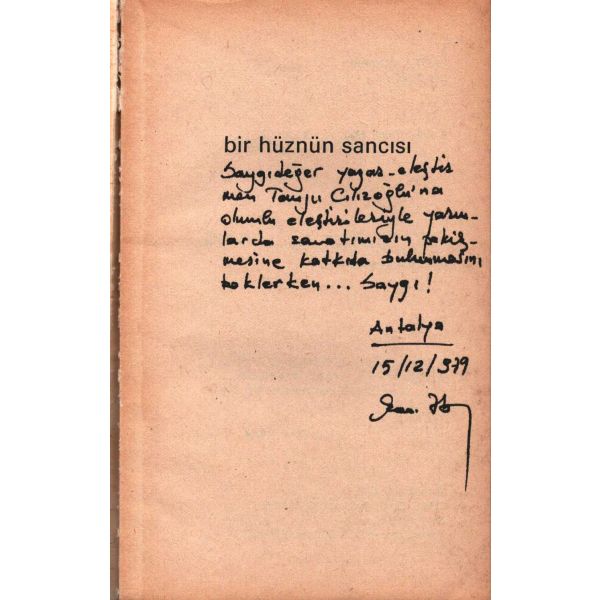 bir hüznün sancısı
Saygıdeğer yazar-eleştir
men Tanju Cılızoğlu'na
olumlu eleştirileriyle yarın-
larda sanatımızın pekiş-
mesine katkıda bulunmasını
beklerken... Saygı!
Antalya
15/12/979